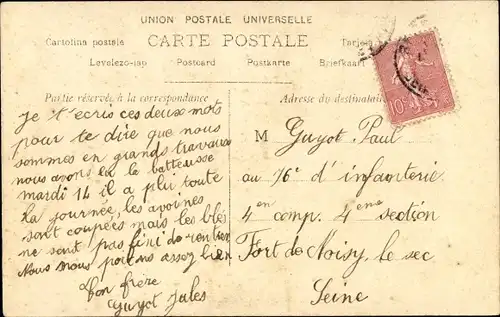 UNION POSTALE UNIVERSELLE
Cartolina postale CARTE POSTALE
Levelezo-lap Postcard Postkarte Briefkaart
Partie réservée à la correspondance
Adresse du destinataire
Je t'écris ces deux mots
pour te dire que nous
sommes en grands travaux
nous avons eu la batteusse
mardi 14 il a plu toute
la journée, les avoines
sont coupées mais les blés
ne sont pas fini de rentrer
Nous nous portons assez bien
ton frère
Guyot Jules
M Guyot Paul
au 76e d'infanterie
4en comp. 4eme section
Fort de Noisy le sec
Seine
10c